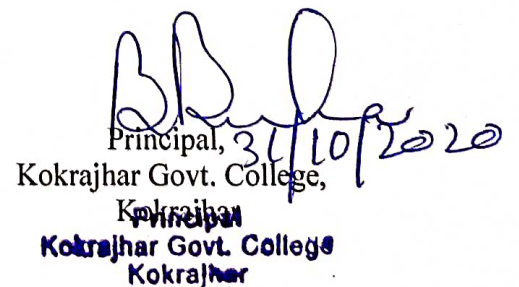 Principal, 31/10/2020
Kokrajhar Govt. College,
Kokrajhar
Principal
Kokrajhar Govt. College
Kokrajhar